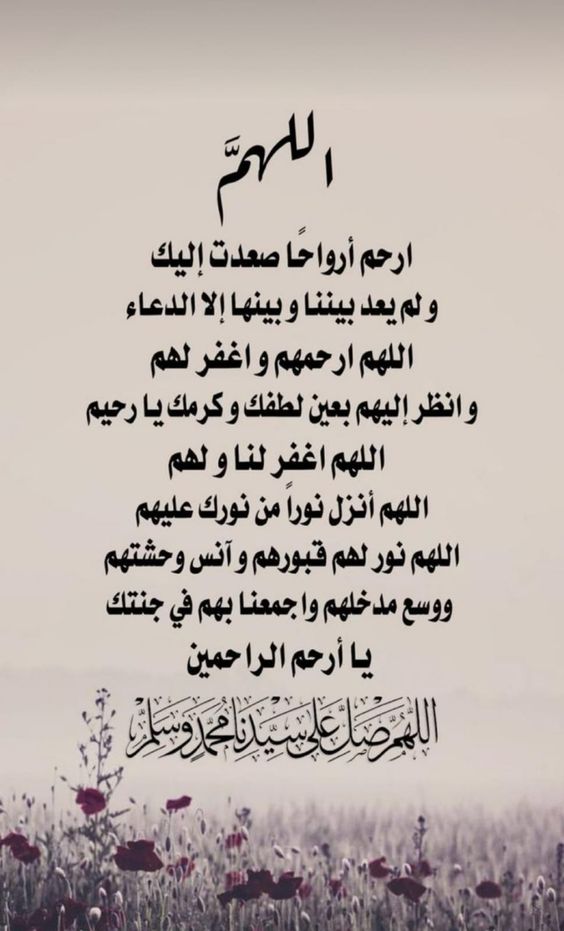 اللهمَّ
ارحم أرواحًا صعدت إليك
و لم يعد بيننا و بينها إلا الدعاء
اللهم ارحمهم و اغفر لهم
و انظر إليهم بعين لطفك و كرمك يا رحيم
اللهم اغفر لنا و لهم
اللهم أنزل نوراً من نورك عليهم
اللهم نور لهم قبورهم و آنس وحشتهم
ووسع مدخلهم واجمعنا بهم في جنتك
يا أرحم الراحمين
اللَّهُمَّ صَلِّ عَلَى سَيِّدِنَا مُحَمَّدٍ وَسَلِّمْ